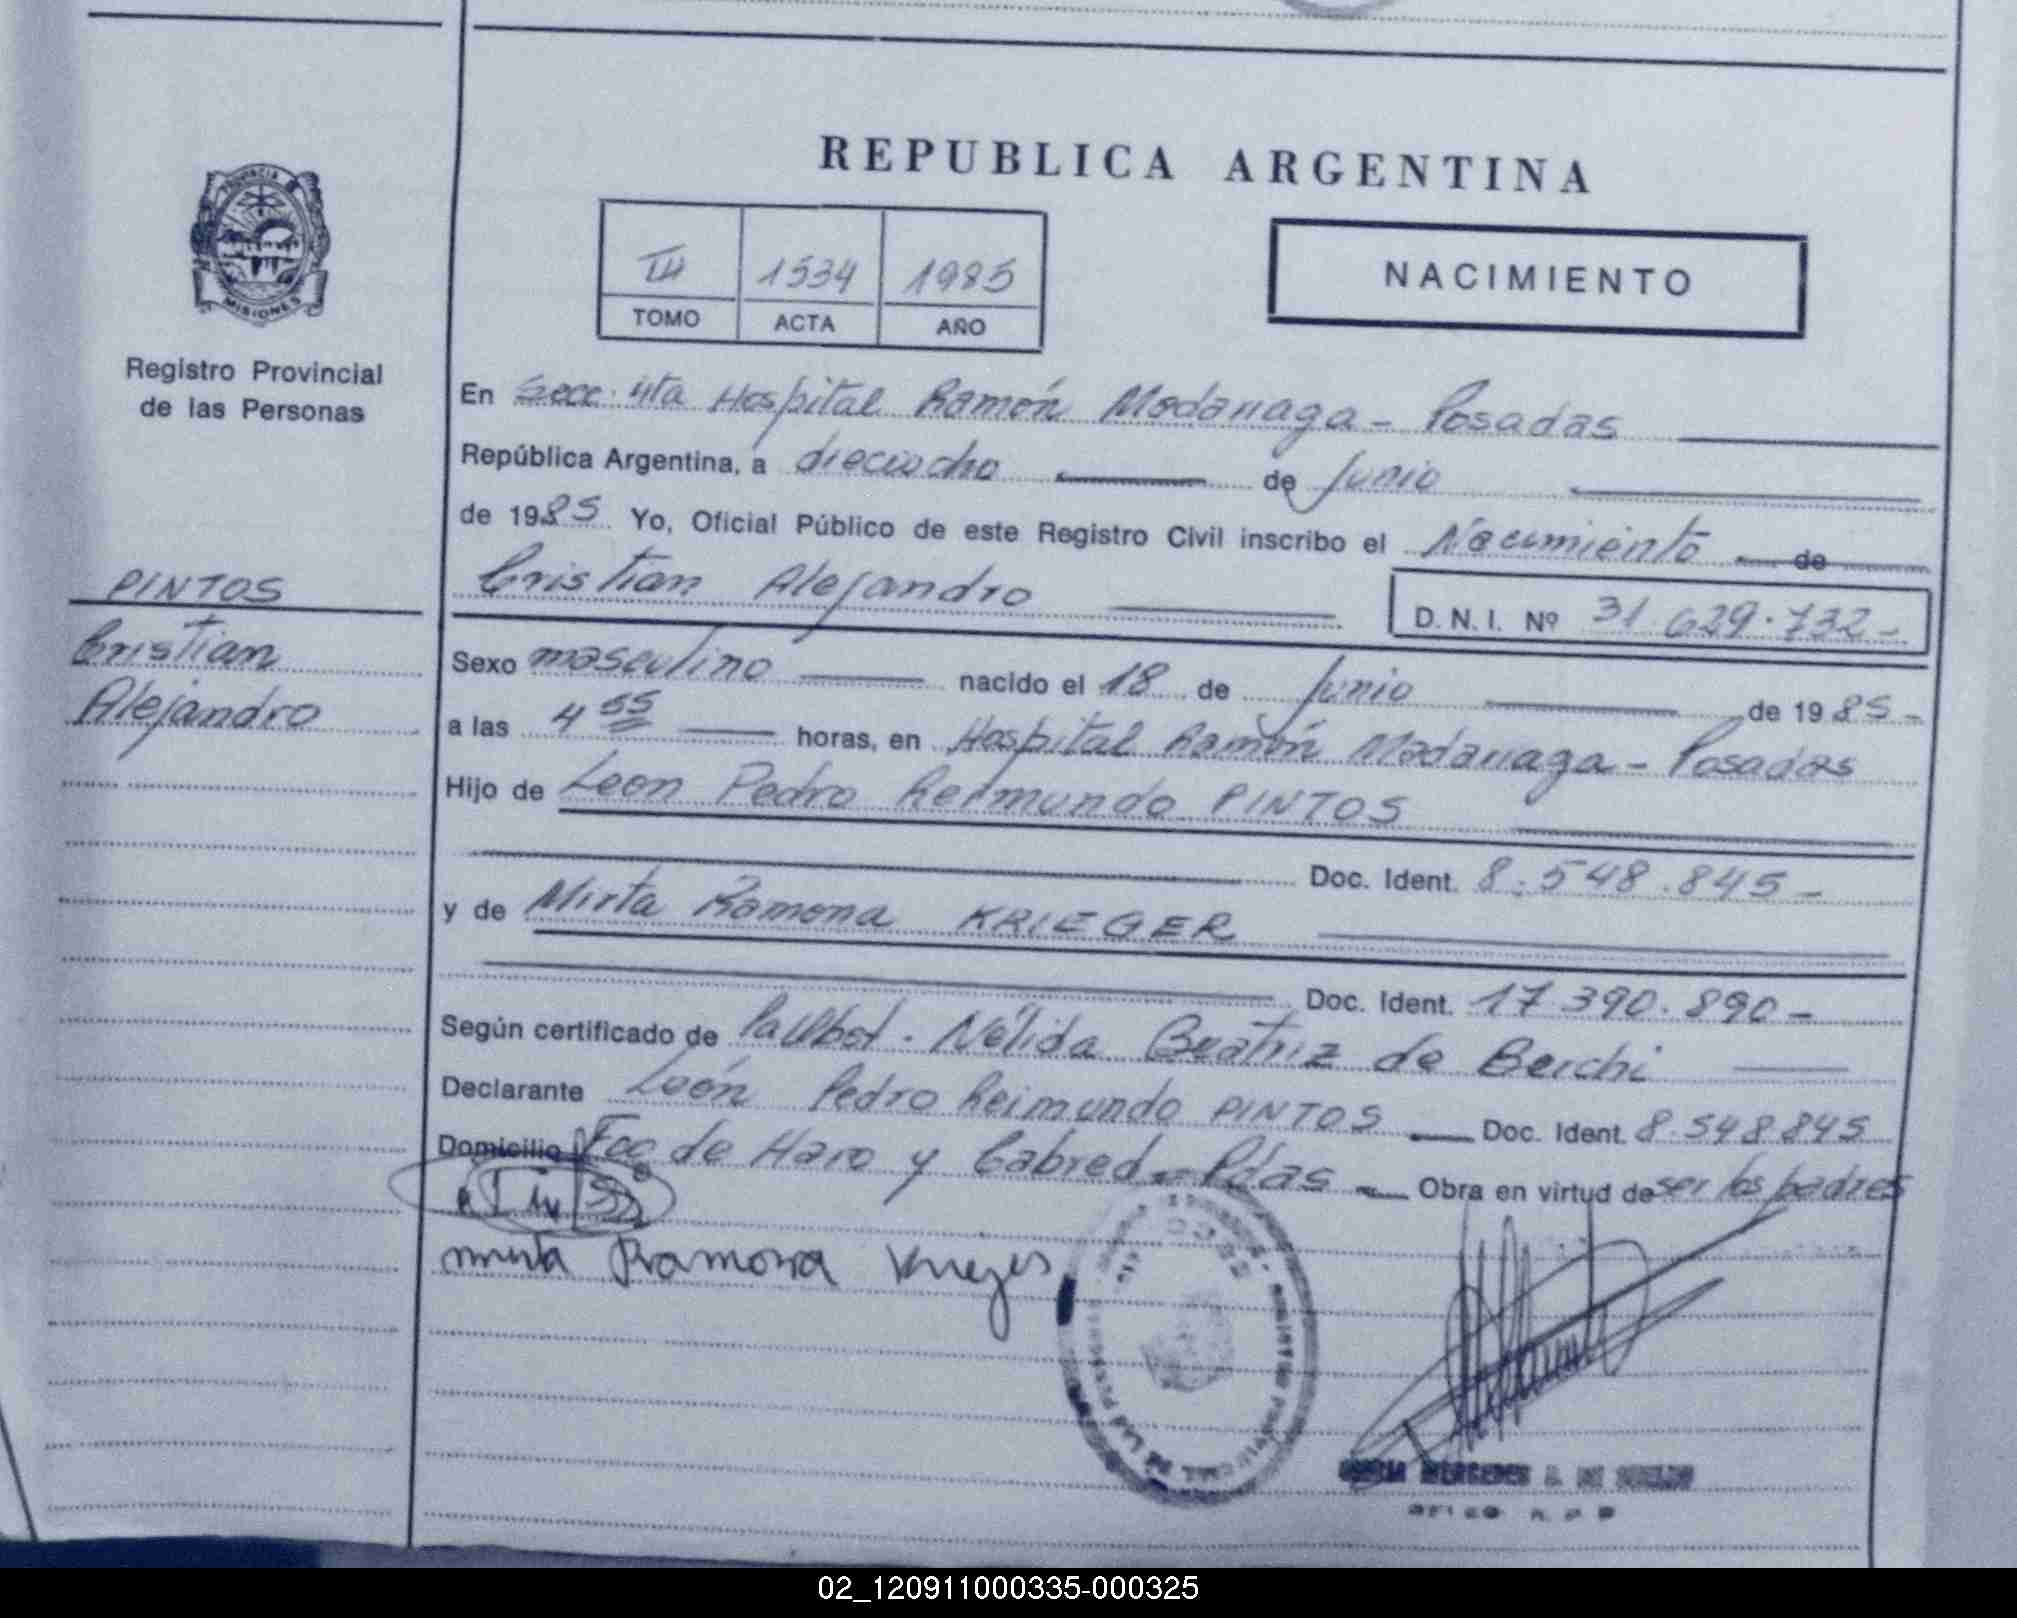 REPUBLICA ARGENTINA
PROVINCIA D
MISIONES
Registro Provincial
de las Personas
III 1534 1985
TOMO ACTA AÑO
NACIMIENTO
En Secc. 4ta Hospital Ramón Madariaga - Posadas
República Argentina, a dieciocho de Junio
de 1985 Yo, Oficial Público de este Registro Civil inscribo el Nacimiento de
Cristian Alejandro D.N.I. Nº 31.629.732-
PINTOS
Cristian
Alejandro
Sexo masculino nacido el 18 de Junio de 1985-
a las 4 55 horas, en Hospital Ramón Madariaga - Posadas
Hijo de Leon Pedro Reimundo PINTOS
Doc. Ident. 8.548.845-
y de Mirta Ramona KRIEGER
Doc. Ident. 17.390.890-
Según certificado de Nélida Beatriz de Berchi
Declarante León Pedro Reimundo PINTOS Doc. Ident. 8.548.845
Domicilio Fco de Haro y Cabred - Pdas Obra en virtud de ser los padres
Mirta Ramona Krieger
MERCEDES
02_120911000335-000325